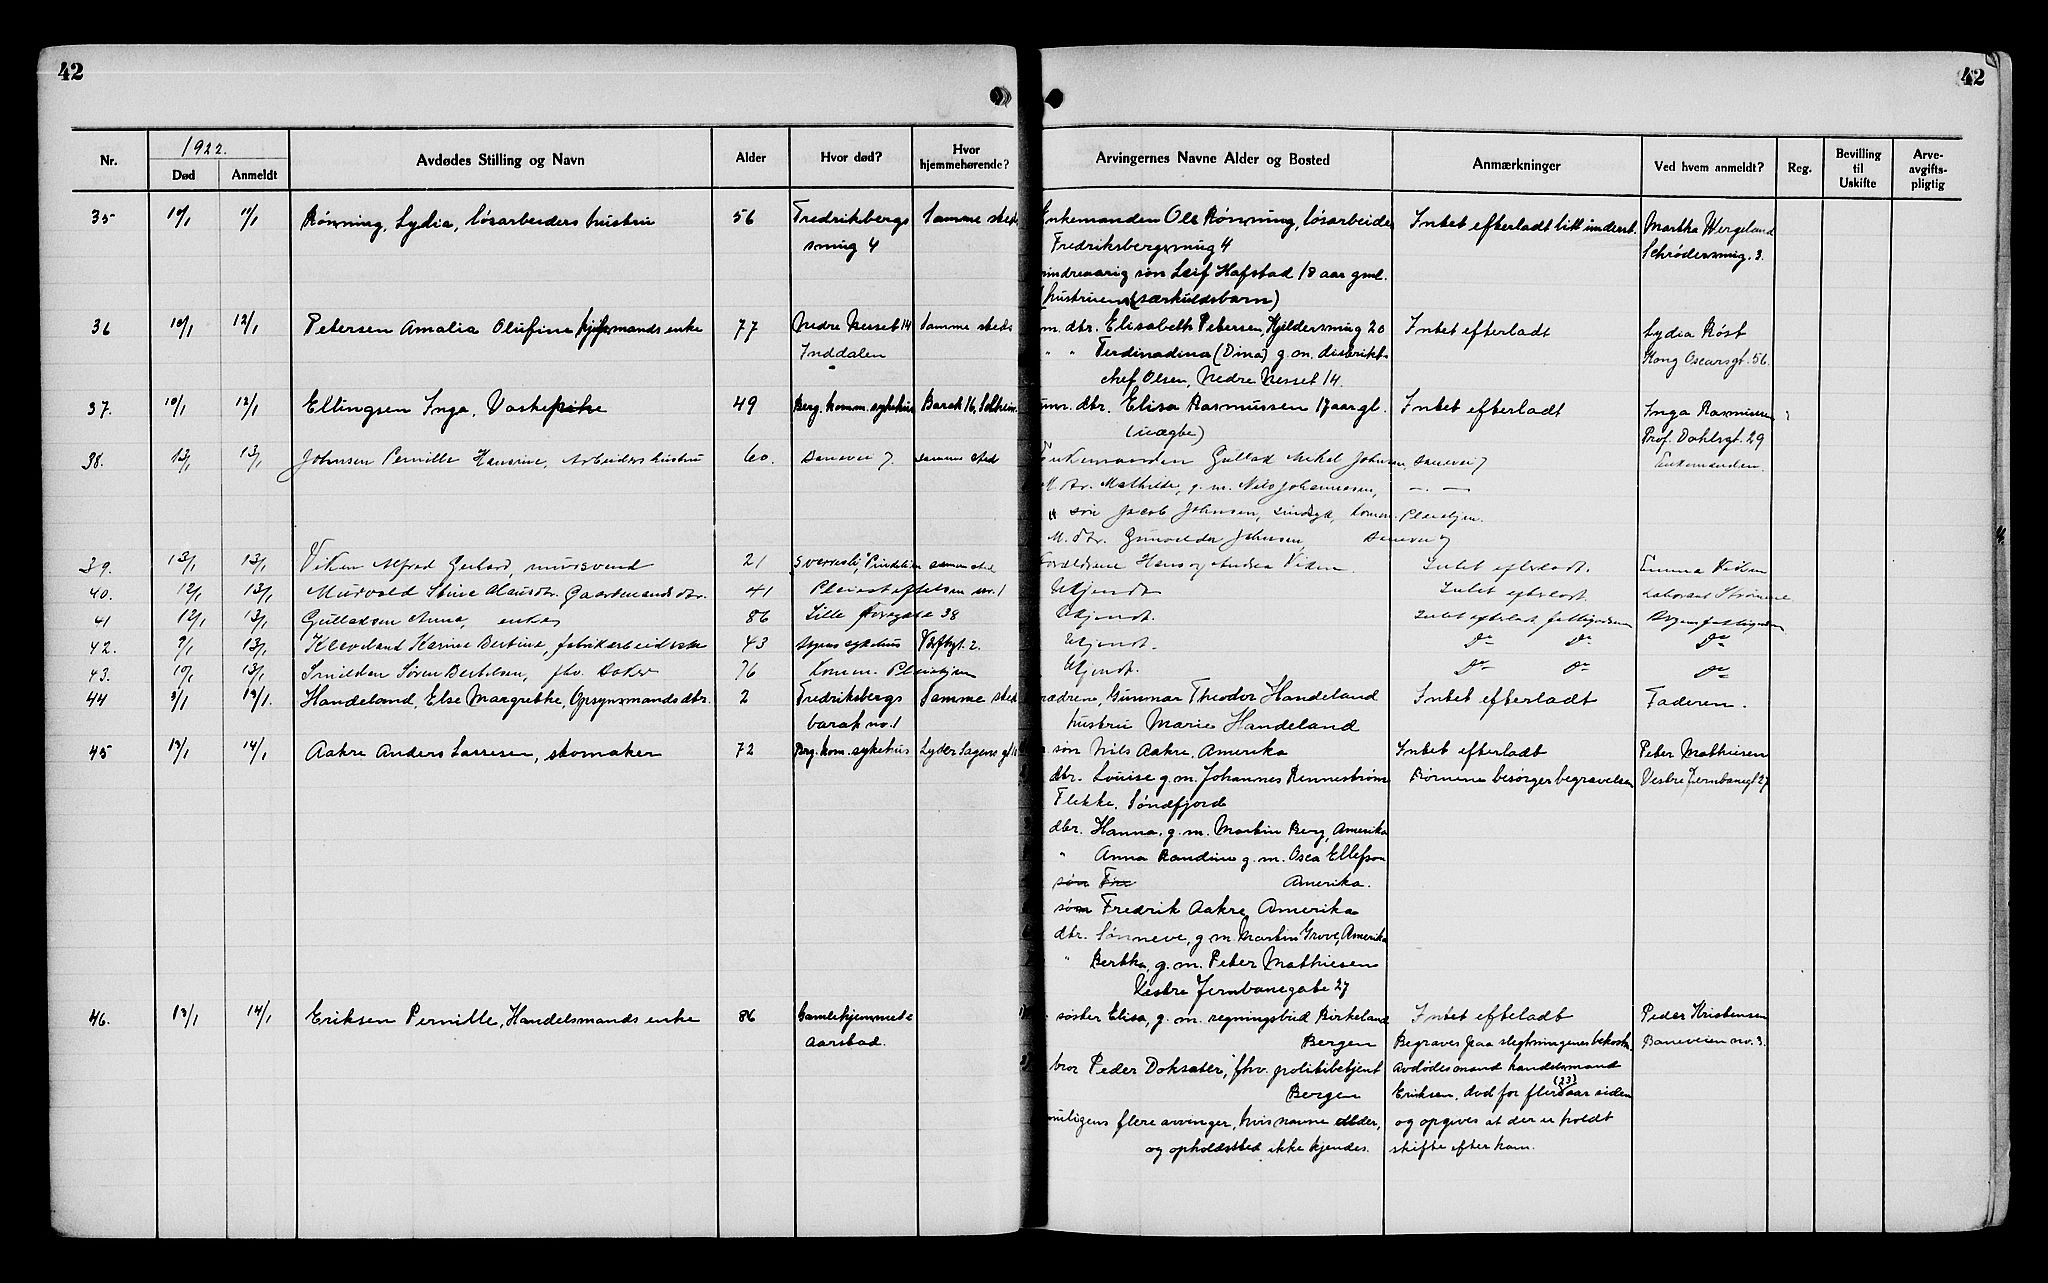 42
42
1922.
Nr.
Død
Anmeldt
Avdødes Stilling og Navn
Alder
Hvor død?
Hvor hjemmehørende?
Arvingernes Navne Alder og Bosted
Anmærkninger
Ved hvem anmeldt?
Reg.
Bevilling til Uskifte
Arve-avgifts-pligtig
35 10/1 11/1 Rönning, Lydia, lösarbeiders hustru 56 Fredrikbergs Samme sted Enkemanden Ole Rönning, lösarbeider Intet efterladt litt indbest. Martha Wergeland
smug 4 Fredriksbergsmug 4 Schrödersmug. 3.
mindreaarig sön Leif Hafstad 18 aar gml.
(hustruens særkuldsbarn)
36 10/1 12/1 Petersen Amalia Olufine enke 77 Nedre Nesset 14 Samme steds dtr. Elisabeth Petersen, Kjeldersmug 20 Intet efterladt Lydia Röst
Inddalen " " Ferdinadina (Dina) g. m. distrikt- Kong Oscarsgt. 56.
chef Olsen, Nedre Nesset 14.
37. 10/1 12/1 Ellingsen Inga, Vaskepike 49 Berg. komm. sykehus Barak 16, Solheim dtr. Elisa Rasmussen 17 aar gl. Intet efterladt Inga Rasmussen
(uægte) Prof. Dahlsgt. 29
38. 13/1 13/1 Johnsen Pernille Hansine, Arbeiders hustru 60. Banevei 7. samme sted Enkemanden Gullak Mikal Johnsen Banevei 7 Enkemanden.
M. dtr. Mathilde, g. m. Nils Johannesen, — . —
" sön Jacob Johnsen, sindsyk, komm. Pleiehjem.
M. dtr. Johnsen Banevei 7
39. 13/1 13/1 Viken Alfred Gerhard, mursvend 21 samme sted Forældrene Hans og Andrea Viken. Intet efterladt. Emma Viken
40. 12/1 13/1 Murvold Stine Clausdtr. Gaardmandsdtr. 41 Pleiestiftelsen no. 1 Ukjendt Intet efterladt. Strömme
41 12/1 13/1 Gullaksen Anna, enke 86 Lille 38 Ukjendt. Intet efterladt
42. 9/1 13/1 Kleveland Karine Bertine, fabrikarbeiderske 43 sykehus Verftsgt. 2. Ukjendt. Do Do Do
43. 10/1 13/1 Smilden Sören Bertelsen, fhv. 76 Komm. Pleiehjem Ukjendt. Do Do Do
44 9/1 13/1. Handeland, Else Margrethe, Opsynsmandsdtr. 2 Fredriksbergs Samme sted Gunnar Theodor Handeland Intet efterladt Faderen.
barak no. 1 hustru Marie Handeland
45 13/1 14/1 Aakre Anders Larsen, skomaker 72 Brg. kom. sykehus Lyder Sagens gt 11 sön Nils Aakre, Amerika Intet efterladt Peter Mathiesen
dtr. Louise g. m. Johannes Renneström Börnene besörger begravelsen Vestre Jernbanegt 27
Flekke, Söndfjord
dtr. Hanna, g. m. Martin Berg, Amerika
" Anna Randine g. m. Osca Ellefson
sön Fre Amerika.
sön Fredrik Aakre, Amerika
dtr. Sönneve, g. m. Martin Grove, Amerika
" Bertha, g. m. Peter Mathiesen
Vestre Jernbanegate 27
46. 13/1 14/1 Eriksen Pernille, Handelsmands enke 86 Gamlehjemmet söster Elisa, g. m. regningsbud Birkeland Intet efteladt Peder Kristensen
Aarstad. Bergen Begraves paa slegtningenes bekostn. Baneveien no. 3.
bror Peder Doksæter, fhv. politibetjent Avdødes mand handelsmand
Bergen Eriksen, död for flere (23) aar siden
muligens flere arvinger, hvis navne alder, og opgives at der er holdt
og opholdssted ikke kjendes. skifte efter ham.